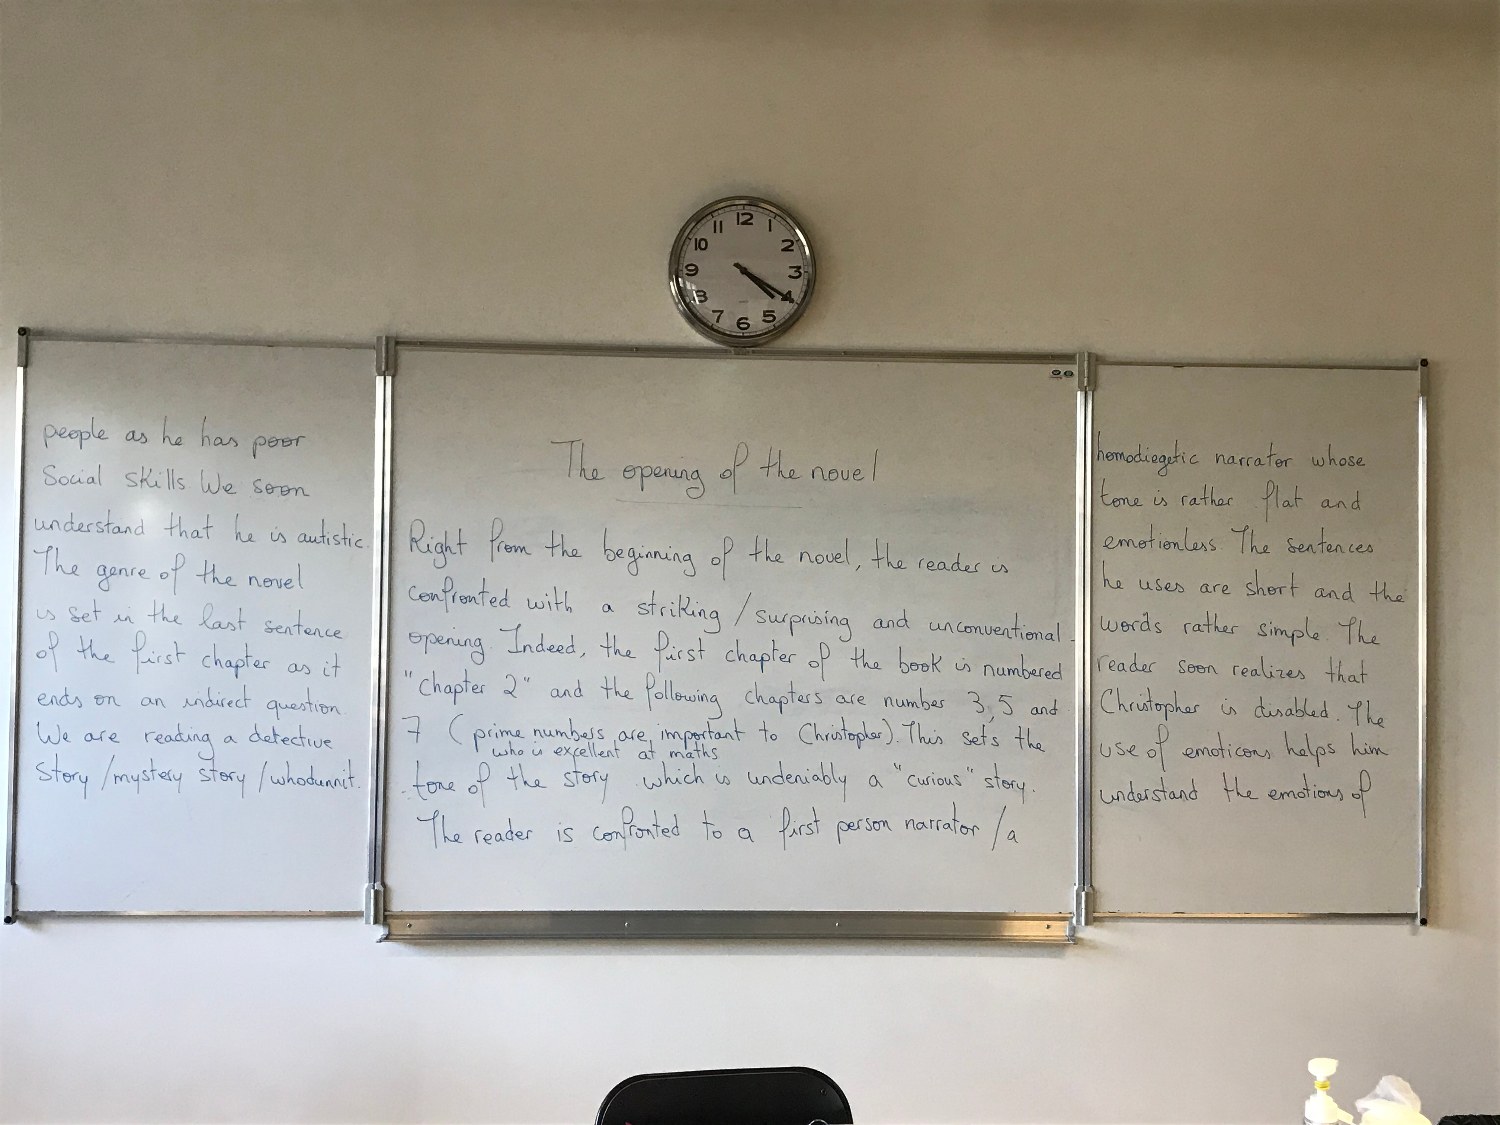 12
1
2
3
4
5
6
7
8
9
10
11
The opening of the novel
Right from the beginning of the novel, the reader is
confronted with a striking / surprising and unconventional
opening. Indeed, the first chapter of the book is numbered
"Chapter 2" and the following chapters are number 3, 5 and
7 (prime numbers are important to Christopher). This sets the
who is excellent at maths
tone of the story which is undeniably a "curious" story.
The reader is confronted to a first person narrator / a
homodiegetic narrator whose
tone is rather flat and
emotionless. The sentences
he uses are short and the
words rather simple. The
reader soon realizes that
Christopher is disabled. The
use of emoticons helps him
understand the emotions of
people as he has poor
Social skills. We soon
understand that he is autistic.
The genre of the novel
is set in the last sentence
of the first chapter as it
ends on an indirect question.
We are reading a detective
story / mystery story / whodunnit.